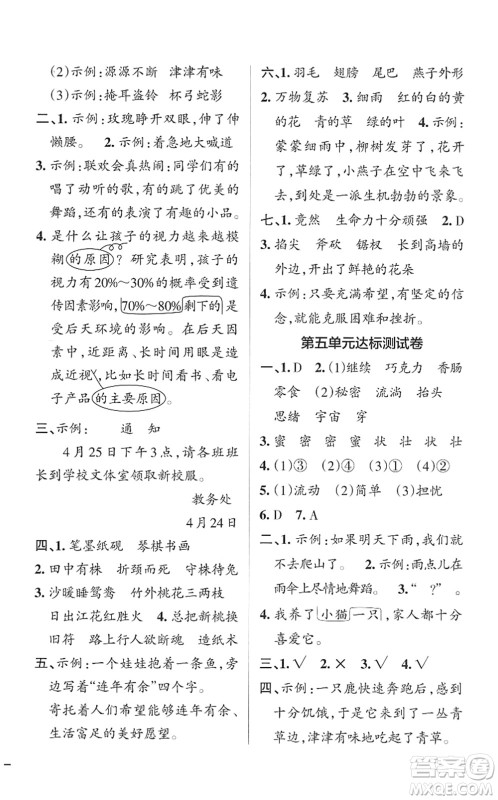 (2)示例:源源不断 津津有味
(3)示例:掩耳盗铃 杯弓蛇影
二、1.示例:玫瑰睁开双眼,伸了伸
懒腰。 2.示例:着急地大喊道
3.示例:联欢会真热闹:同学们有的
唱了动听的歌,有的跳了优美的
舞蹈,还有的表演了有趣的小品。
4.是什么让孩子的视力越来越模
糊的原因?研究表明,孩子的
视力有20%~30%的概率受到遗
传因素影响,70%~80%剩下的
受后天环境的影响。在后天因
素中,造成近视的主要原因是
比如,长时间近距离看书、看电
子产品的主要原因。
三、示例: 通 知
4月25日下午3点,请各班班
长到学校文体室领取新校服。
教务处
4月24日
四、1.笔墨纸砚 琴棋书画
2.田中有株 折颈而死 守株待兔
3.沙暖睡鸳鸯 竹外桃花三两枝
日出江花红胜火 4.总把新桃换
旧符 路上行人欲断魂 造纸术
五、示例:一个娃娃抱着一条鱼,旁
边写着“连年有余”四个字。
寄托了人们希望能够连年有余、
生活富足的美好愿望。
六、1.羽毛 翅膀 尾巴 燕子外形
2.万物复苏 3.细雨 红的白的黄
的花 青的草 绿的叶 4.示例:
蒙蒙细雨中,柳树发芽了,花开
了,草绿了,小燕子在空中飞来
飞去,好一派生机勃勃的景象。
七、1.竟然 生命力十分顽强 2.D
3.掐尖 斧砍 锯杈 长到高墙的
外边,并开出了鲜艳的花朵
4.示例:只要充满希望,有坚定的信
念,就能克服困难和挫折。
第五单元达标测试卷
一、1.D 2.(1)继续 巧克力 香肠
零食 (2)秘密 流淌 抬头
思绪 宇宙 穿
3.蜜 密 密 蜜 状 壮 状 壮
4.(1)③ (2)④ (3)① (4)②
5.(1)流动 (2)简单 (3)担忧
6.D 7.A
二、1.示例:如果明天下雨,我们就
不去爬山了。 2.示例:雨点儿在
雨伞上尽情地舞蹈。 3.“ ?” 。
4.我养了小猫一只,家人都十分
喜爱它。
三、1.√ 2.× 3.√ 4.√
四、示例:一只鹿快速奔跑后,感到
十分饥饿,于是来到了一丛青
草边,津津有味地吃起了青草。